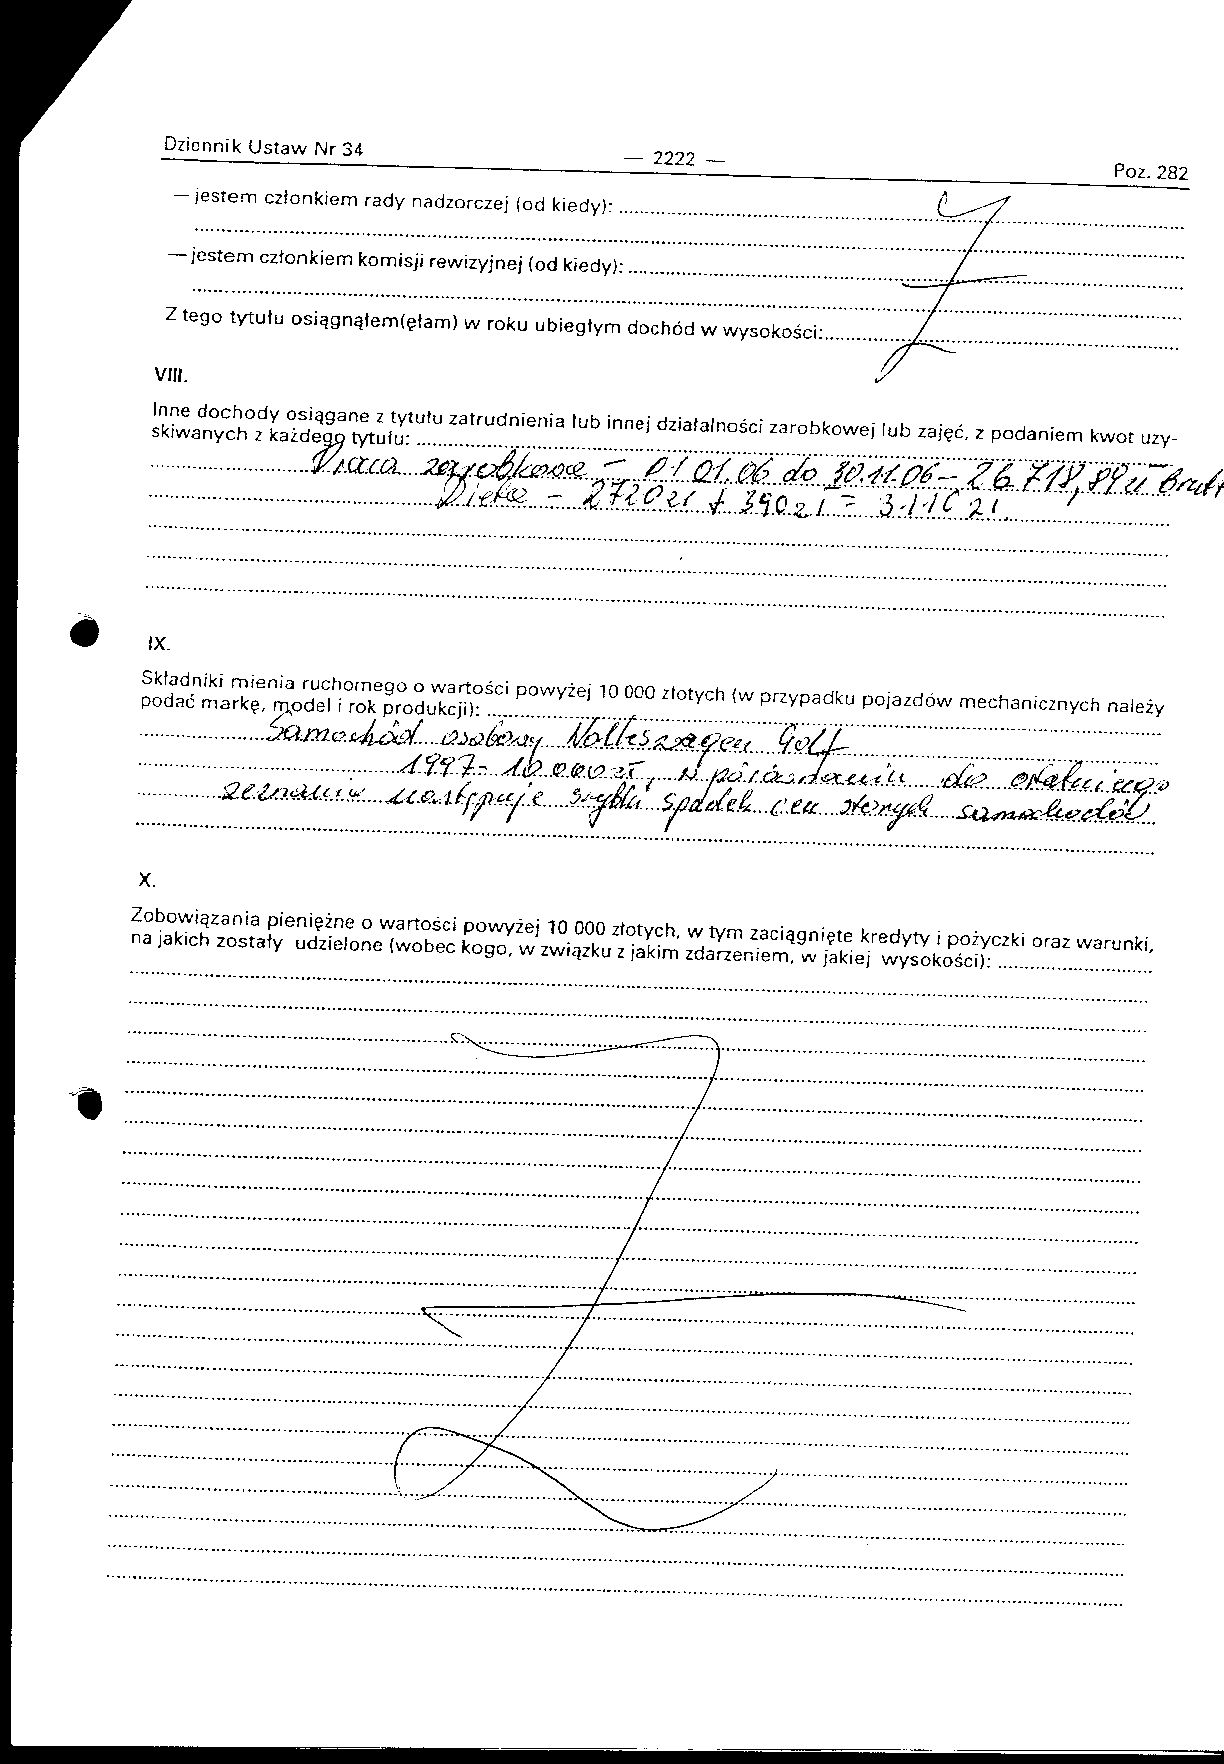 Dziennik Ustaw Nr 34 — 2222 — Poz. 282
— jestem członkiem rady nadzorczej (od kiedy):
— jestem członkiem komisji rewizyjnej (od kiedy):
Z tego tytułu osiągnąłem(ęłam) w roku ubiegłym dochód w wysokości:
VIII.
Inne dochody osiągane z tytułu zatrudnienia lub innej działalności zarobkowej lub zajęć, z podaniem kwot uzy-
skiwanych z każdego tytułu:
Praca zarobkowa – 01.01.06 do 30.11.06 – 26.718,89 zł Brutt
Dieta – 2720 zł + 390 zł = 3.110 zł.
IX.
Składniki mienia ruchomego o wartości powyżej 10 000 złotych (w przypadku pojazdów mechanicznych należy
podać markę, model i rok produkcji):
Samochód osobowy Volkswagen Golf
1997 - 10 000 zł, w porównaniu do ostatniego
zeznania następuje szybki spadek cen starych samochodów
X.
Zobowiązania pieniężne o wartości powyżej 10 000 złotych, w tym zaciągnięte kredyty i pożyczki oraz warunki,
na jakich zostały udzielone (wobec kogo, w związku z jakim zdarzeniem, w jakiej wysokości):